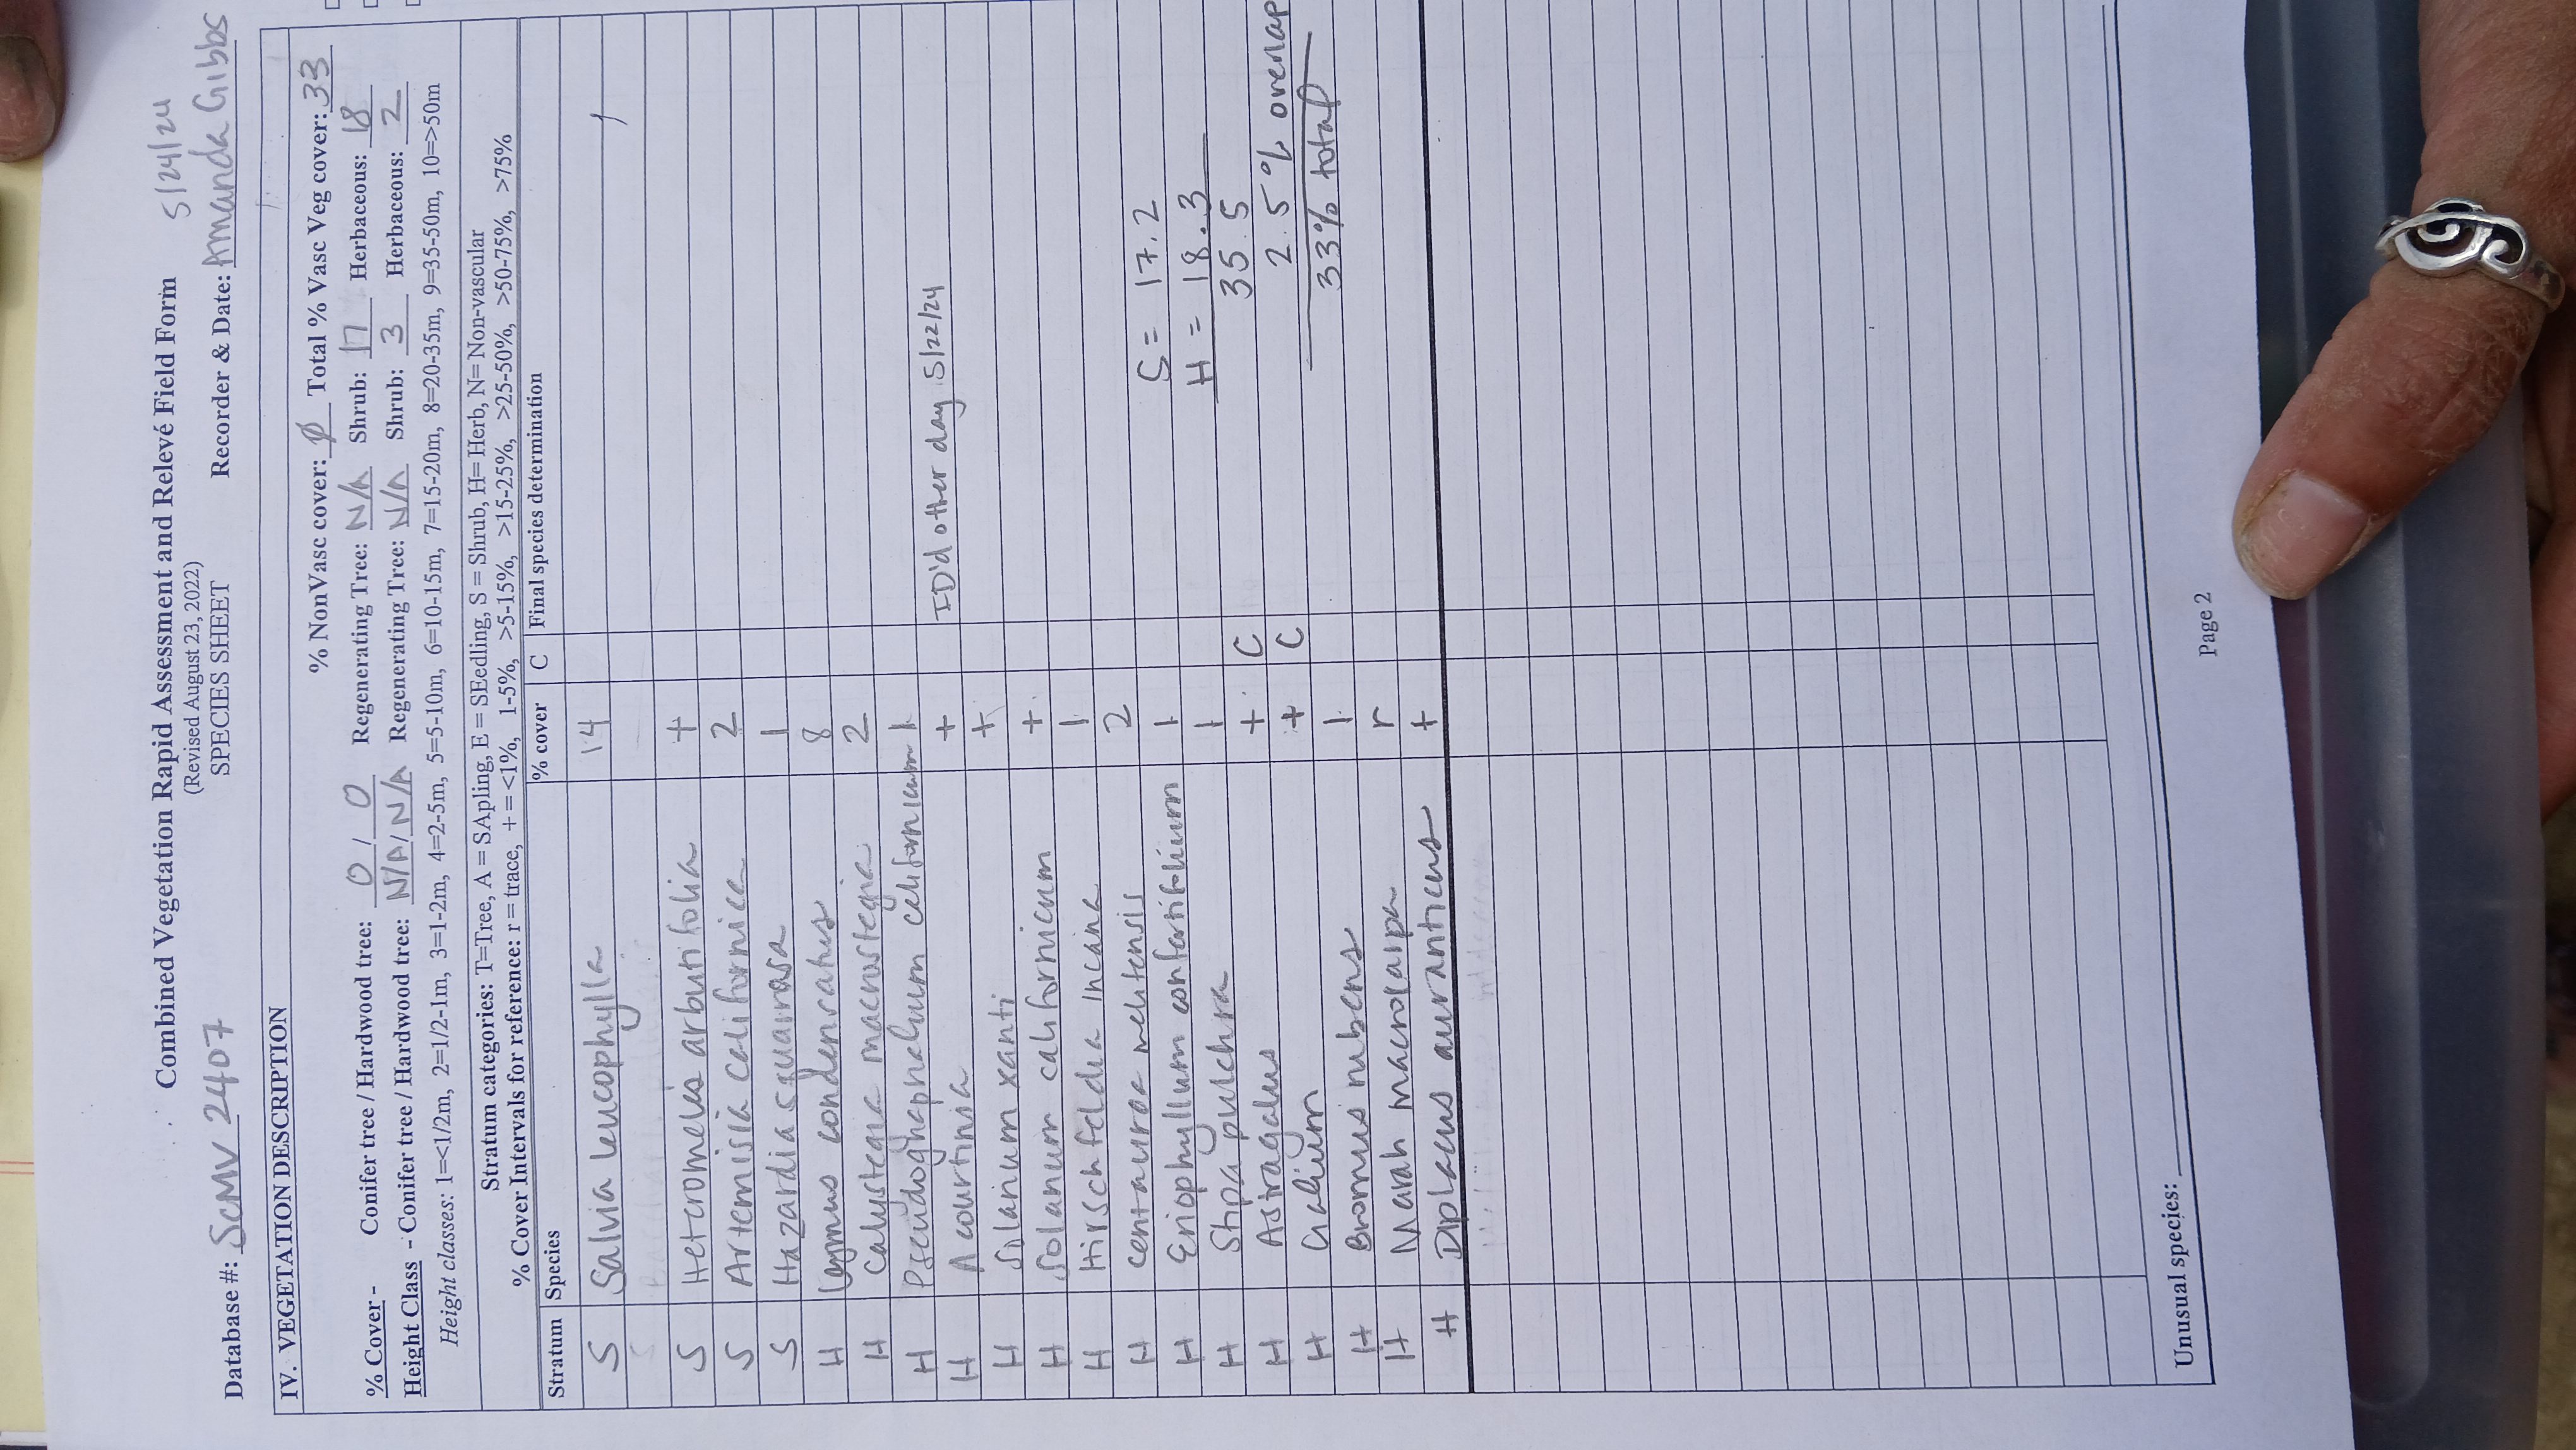 Combined Vegetation Rapid Assessment and Relevé Field Form
(Revised August 23, 2022)
5/24/24
Database #: SCMV 2407 SPECIES SHEET Recorder & Date: Amanda Gibbs
IV. VEGETATION DESCRIPTION
% NonVasc cover: Ø Total % Vasc Veg cover: 33
% Cover - Conifer tree / Hardwood tree: 0 / 0 Regenerating Tree: N/A Shrub: 17 Herbaceous: 18
Height Class - Conifer tree / Hardwood tree: N/A / N/A Regenerating Tree: N/A Shrub: 3 Herbaceous: 2
Height classes: 1=<1/2m, 2=1/2-1m, 3=1-2m, 4=2-5m, 5=5-10m, 6=10-15m, 7=15-20m, 8=20-35m, 9=35-50m, 10=>50m
Stratum categories: T=Tree, A = SApling, E = SEedling, S = Shrub, H= Herb, N= Non-vascular
% Cover Intervals for reference: r = trace, + = <1%, 1-5%, >5-15%, >15-25%, >25-50%, >50-75%, >75%
Stratum Species % cover C Final species determination
S Salvia leucophylla 14
S Heteromeles arbutifolia +
S Artemisia californica 2
S Hazardia squarrosa 1
H Leymus condensatus 8
H Calystegia macrostegia 2
H Pseudognaphalium californicum 1
H Acourtinia + ID'd other day 5/22/24
H Solanum xanti +
H Solanum californicum +
H Hirschfeldia incana 1
H Centaurea melitensis 2 S = 17.2
H Eriophyllum confertiflorum 1 H = 18.3
H Stipa pulchra 1 35.5
H Astragalus + C 2.5% overlap
H Galium + C 33% total
H Bromus rubens 1
H Marah macrocarpa r
H Diplacus auranticus +
Unusual species:
Page 2